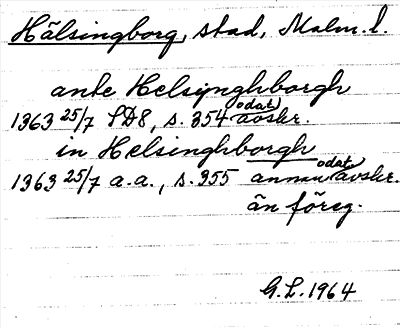 Hälsingborg, stad, Malm. l.
ante Helsijnghborgh
1363 25/7 SD8, s. 354 odat avskr.
in Helsinghborgh
1363 25/7 a.a., s. 355 annan odat avskr.
än föreg.
G.L. 1964